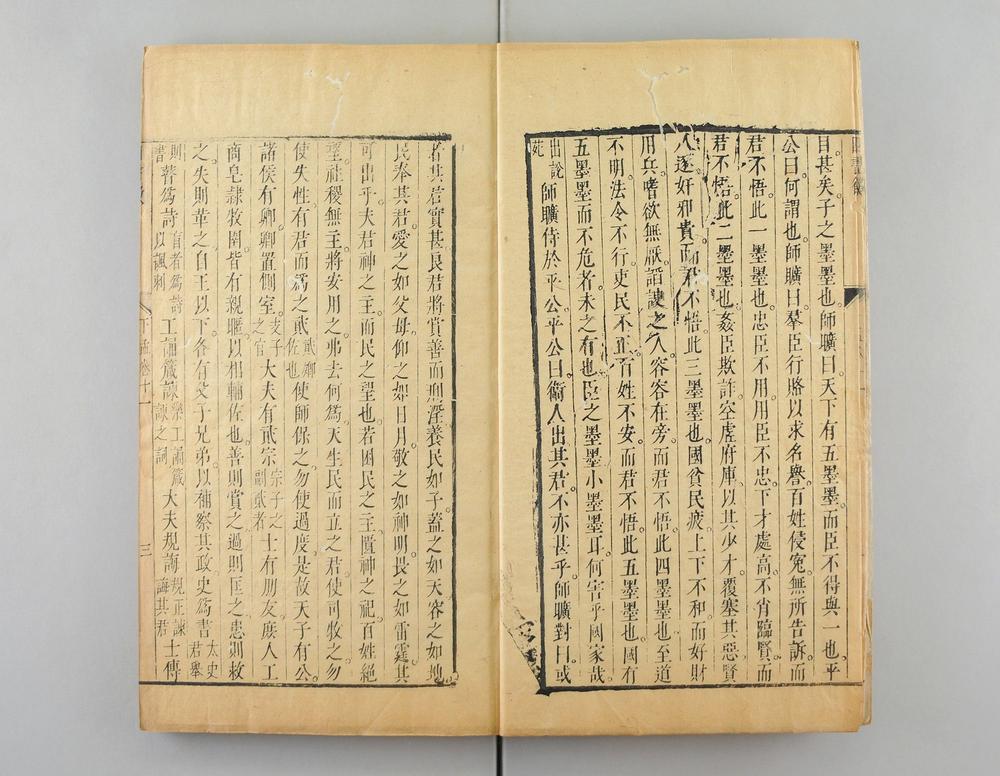 目甚矣子之墨墨也師曠曰天下有五墨墨而臣不得與一也平
公曰何謂也師曠曰羣臣行賂以求名譽百姓侵寃無所告訴而
君不悟此一墨墨也忠臣不用用臣不忠下才處高不肖臨賢而
君不悟此二墨墨也姦臣欺詐空虛府庫以其少才覆塞其惡賢
人逐奸邪貴而君不悟此三墨墨也國貧民疲上下不和而好財
用兵嗜欲無厭諂諛之人容容在旁而君不悟此四墨墨也至道
不明法令不行吏民不正百姓不安而君不悟此五墨墨也國有
五墨墨而不危者未之有也臣之墨墨小墨墨耳何害乎國家哉
出說苑師曠侍於平公平公曰衛人出其君不亦甚乎師曠對曰或
者其君實甚良君將賞善而刑淫養民如子蓋之如天容之如地
民奉其君愛之如父母仰之如日月敬之如神明畏之如雷霆其
可出乎夫君神之主而民之望也若困民之主匱神之祀百姓絕
望社稷無主將安用之弗去何爲天生民而立之君使司牧之勿
使失性有君而爲之貳貳卿佐也使師保之勿使過度是故天子有公
諸侯有卿卿置側室支子之官大夫有貳宗宗子之副貳者士有朋友庶人工
商皂隷牧圉皆有親暱以相輔佐也善則賞之過則匡之患則救
之失則革之自王以下各有父子兄弟以補察其政史爲書太史君舉
則書瞽爲詩盲者爲詩以諷刺工誦箴諫樂工誦箴諫之詞大夫規誨規正諫誨其君士傳
三